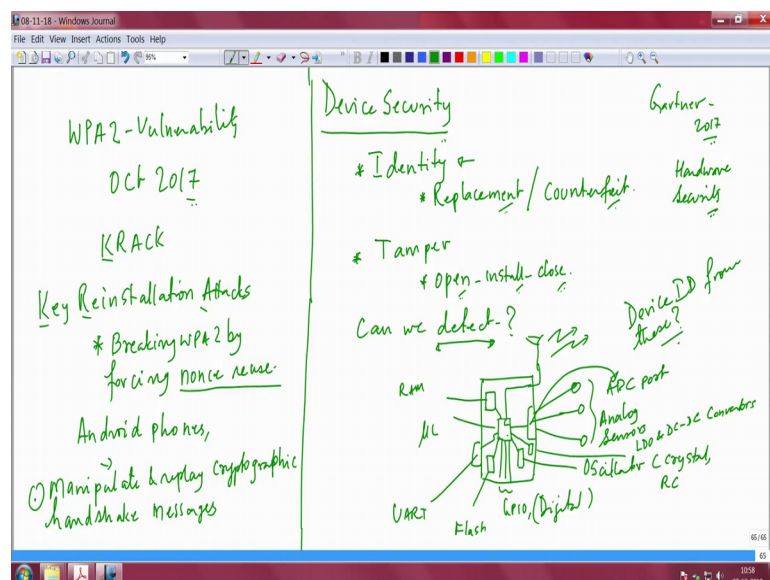 08-11-18 - Windows Journal
File Edit View Insert Actions Tools Help
95%
B I
WPA2-Vulnerability
Oct 2017
KRACK
Key Reinstallation Attacks
* Breaking WPA2 by
forcing nonce reuse.
Android phones,
Manipulate & replay cryptographic
handshake messages
Device Security
* Identity &
* Replacement / Counterfeit.
* Tamper
* open-install-close.
Can we detect-?
Gartner-
2017
Hardware
Security
Device ID from
these?
RAM
μC
UART
Flash
GPIO, (Digital)
ADC port
Analog
Sensors
LDO & DC-DC Convertors
Oscillator C Crystal,
RC
65/65
65
10:58